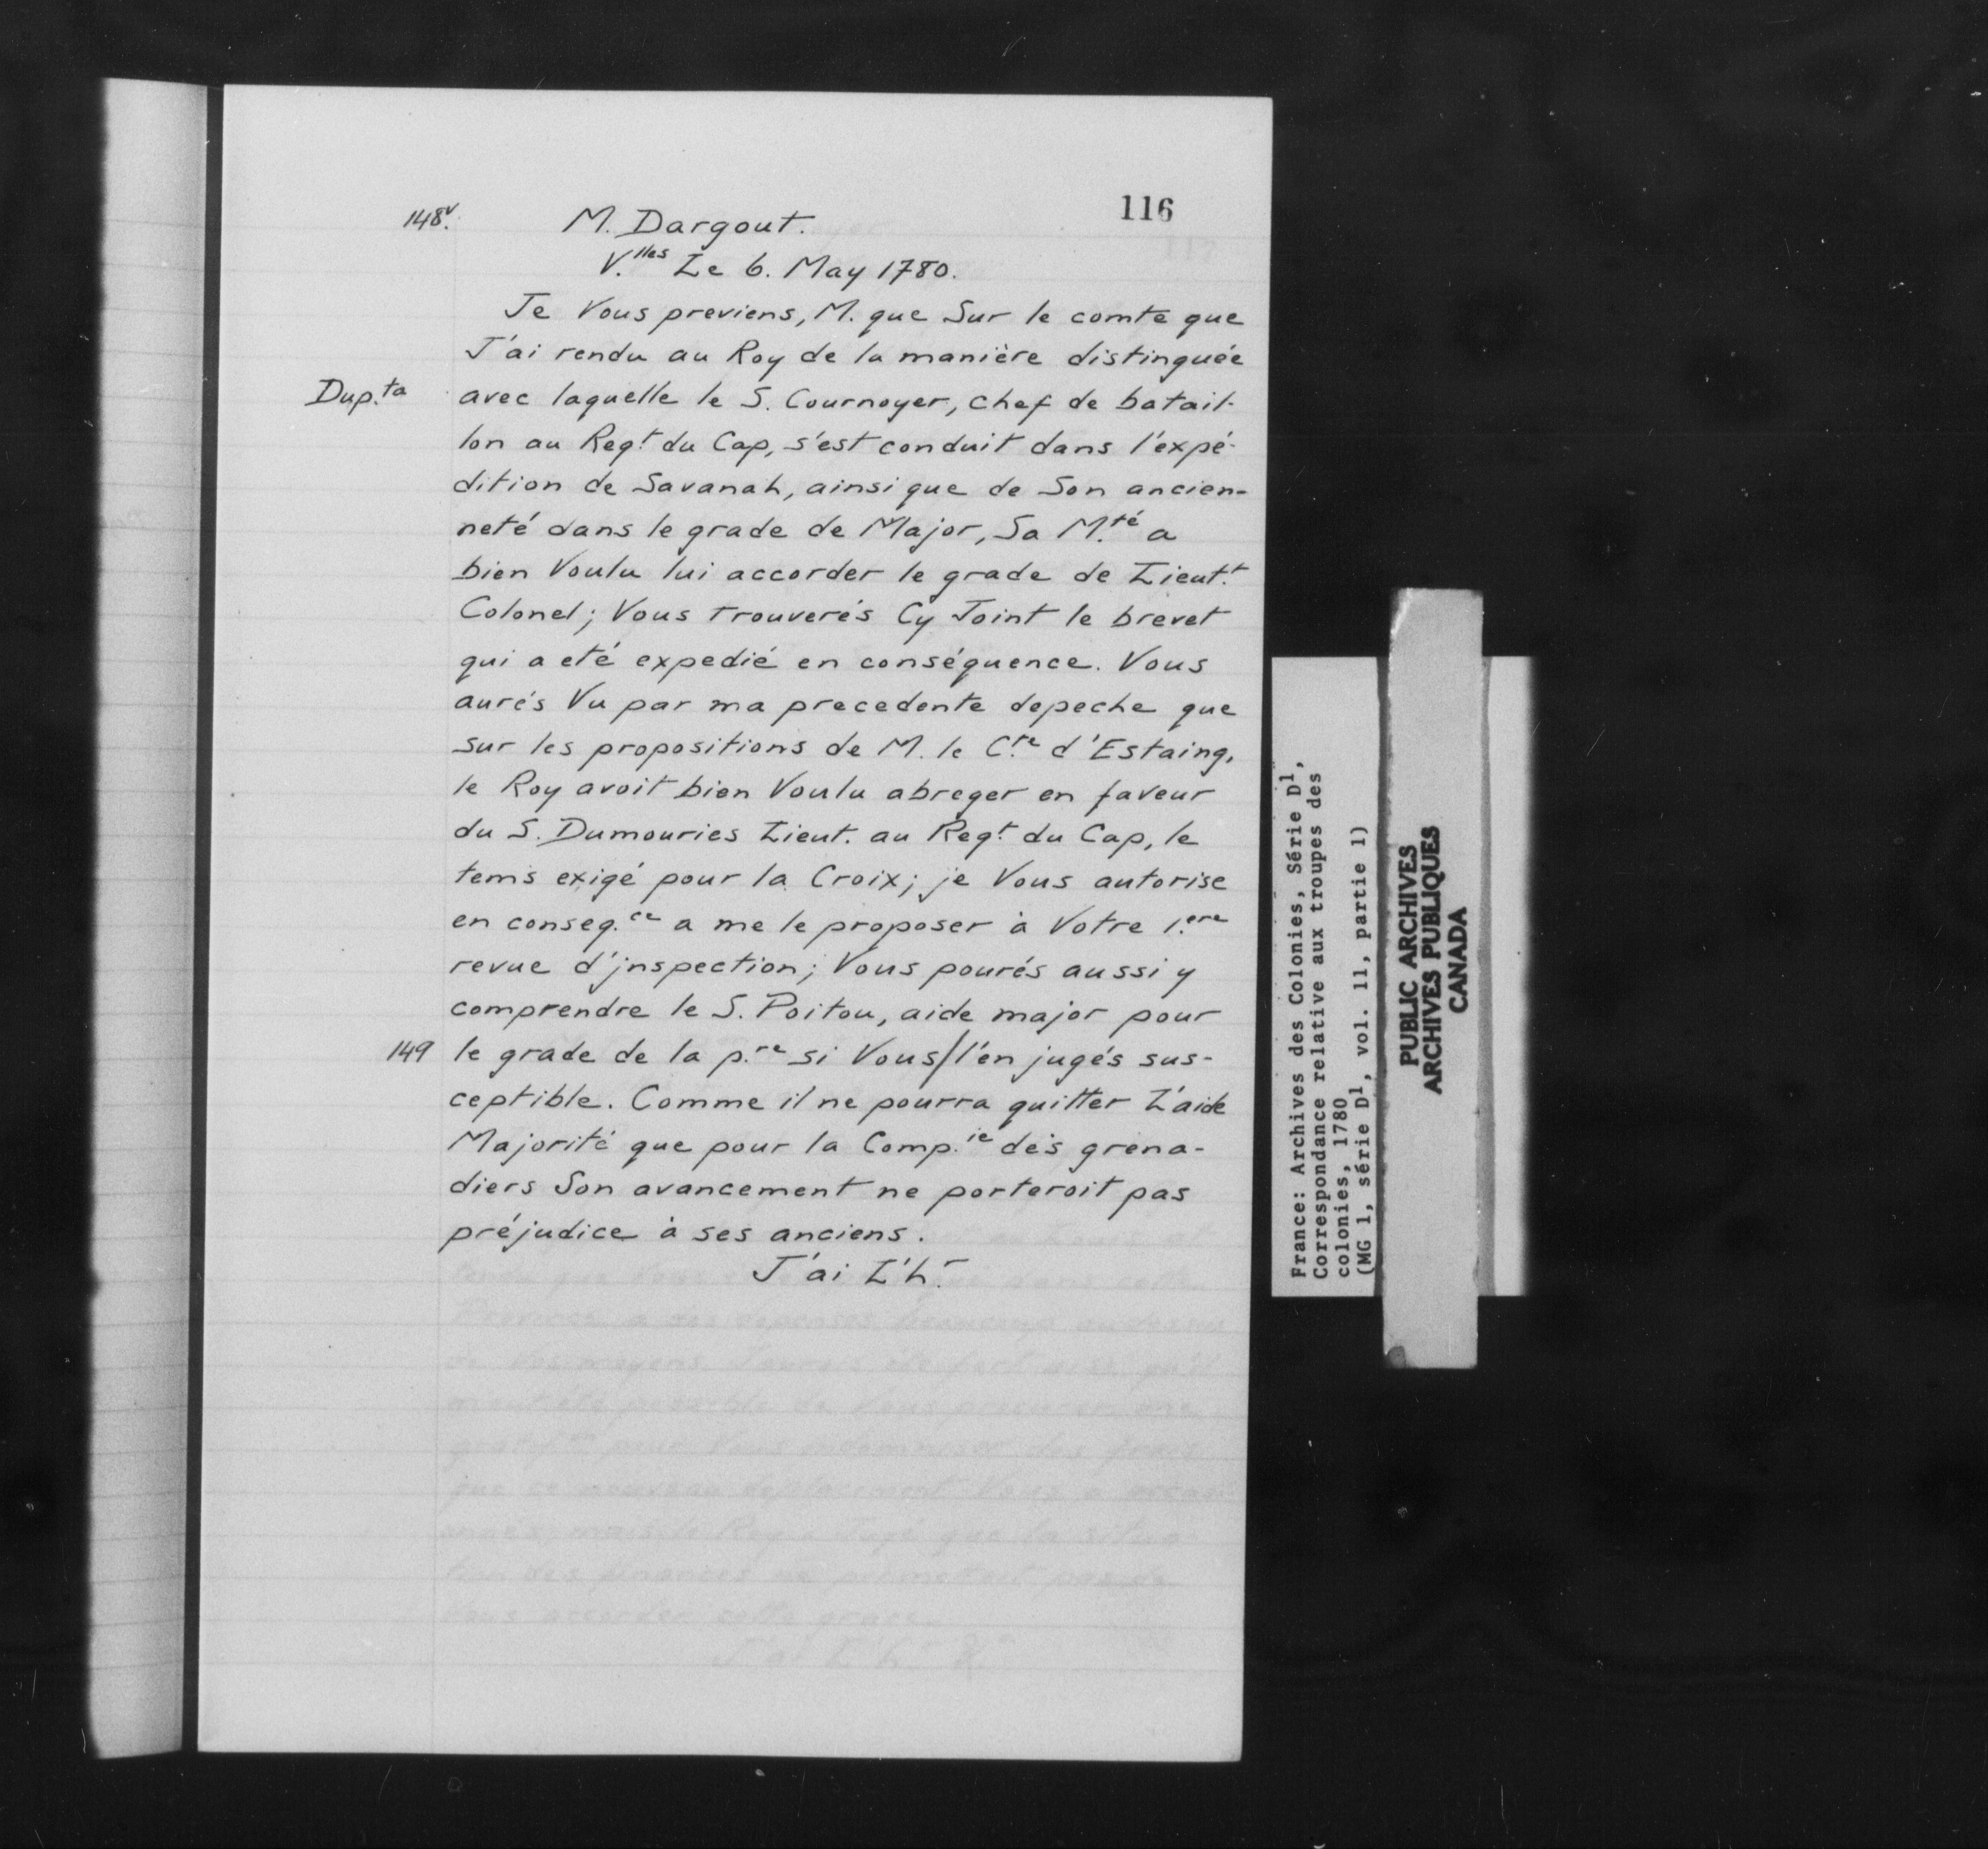 116
148v.
M. Dargout.
V.lles Le 6. May 1780.
Je Vous previens, M. que Sur le comte que
J'ai rendu au Roy de la manière distinguée
Dup.ta
avec laquelle le S. Cournoyer, chef de batail-
lon au Regt. du Cap, s'est conduit dans l'expé-
dition de Savanah, ainsi que de Son ancien-
neté dans le grade de Major, Sa M.té a
bien Voulu lui accorder le grade de Lieut.t
Colonel; Vous trouverés Cy Joint le brevet
qui a eté expedié en conséquence. Vous
aurés Vu par ma precedente depeche que
sur les propositions de M. le C.te d'Estaing,
le Roy avoit bien Voulu abreger en faveur
du S. Dumouries Lieut. au Regt. du Cap, le
tems exigé pour la Croix; je Vous autorise
en conseq.ce a me le proposer à Votre 1.ere
revue d'jnspection; Vous pourés aussi y
comprendre le S. Poitou, aide major pour
149
le grade de la p.re si Vous/l'en jugés sus-
ceptible. Comme il ne pourra quitter L'aide
Majorité que pour la Comp.ie des grena-
diers Son avancement ne porteroit pas
préjudice à ses anciens.
J'ai L'h.r
France: Archives des Colonies, Série D1,
Correspondance relative aux troupes des
colonies, 1780
(MG 1, série D1, vol. 11, partie 1)
PUBLIC ARCHIVES
ARCHIVES PUBLIQUES
CANADA